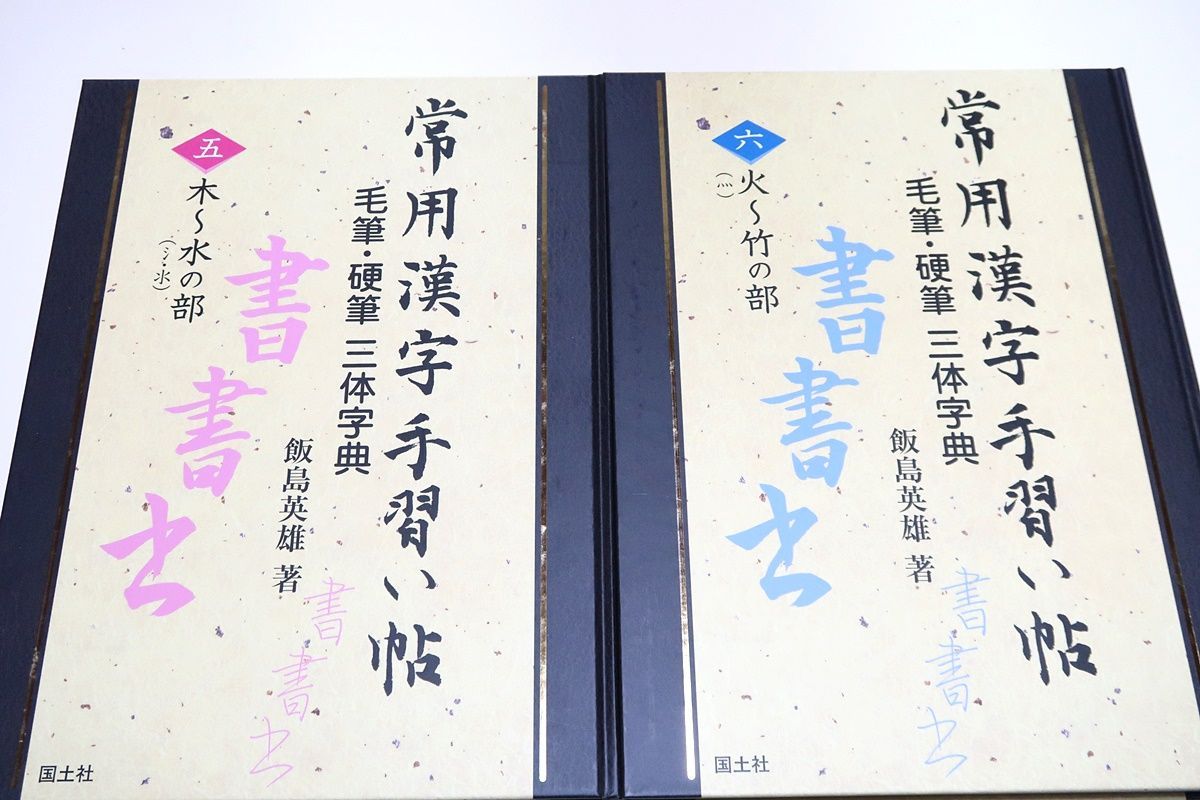 常用漢字手習い帖
毛筆・硬筆 三体字典
五
木～水の部
(氵・氺)
飯島英雄 著
書
書
书
書
書
书
国土社
常用漢字手習い帖
毛筆・硬筆 三体字典
六
火～竹の部
(灬)
飯島英雄 著
書
書
书
書
書
书
国土社